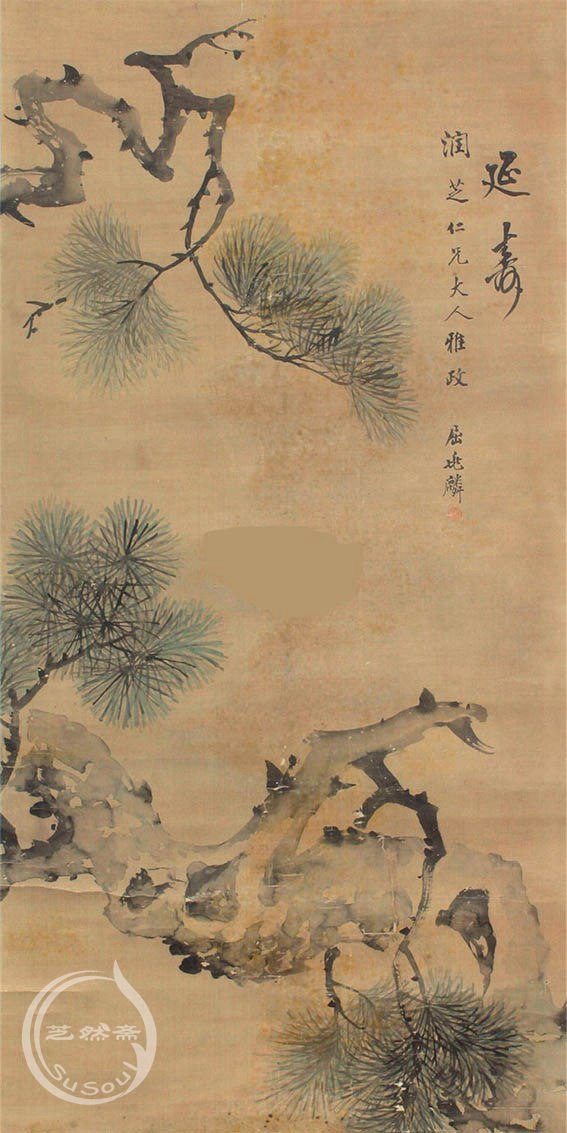 延寿
润芝仁兄大人雅政
屈兆麟
芝然斋
SuSoul